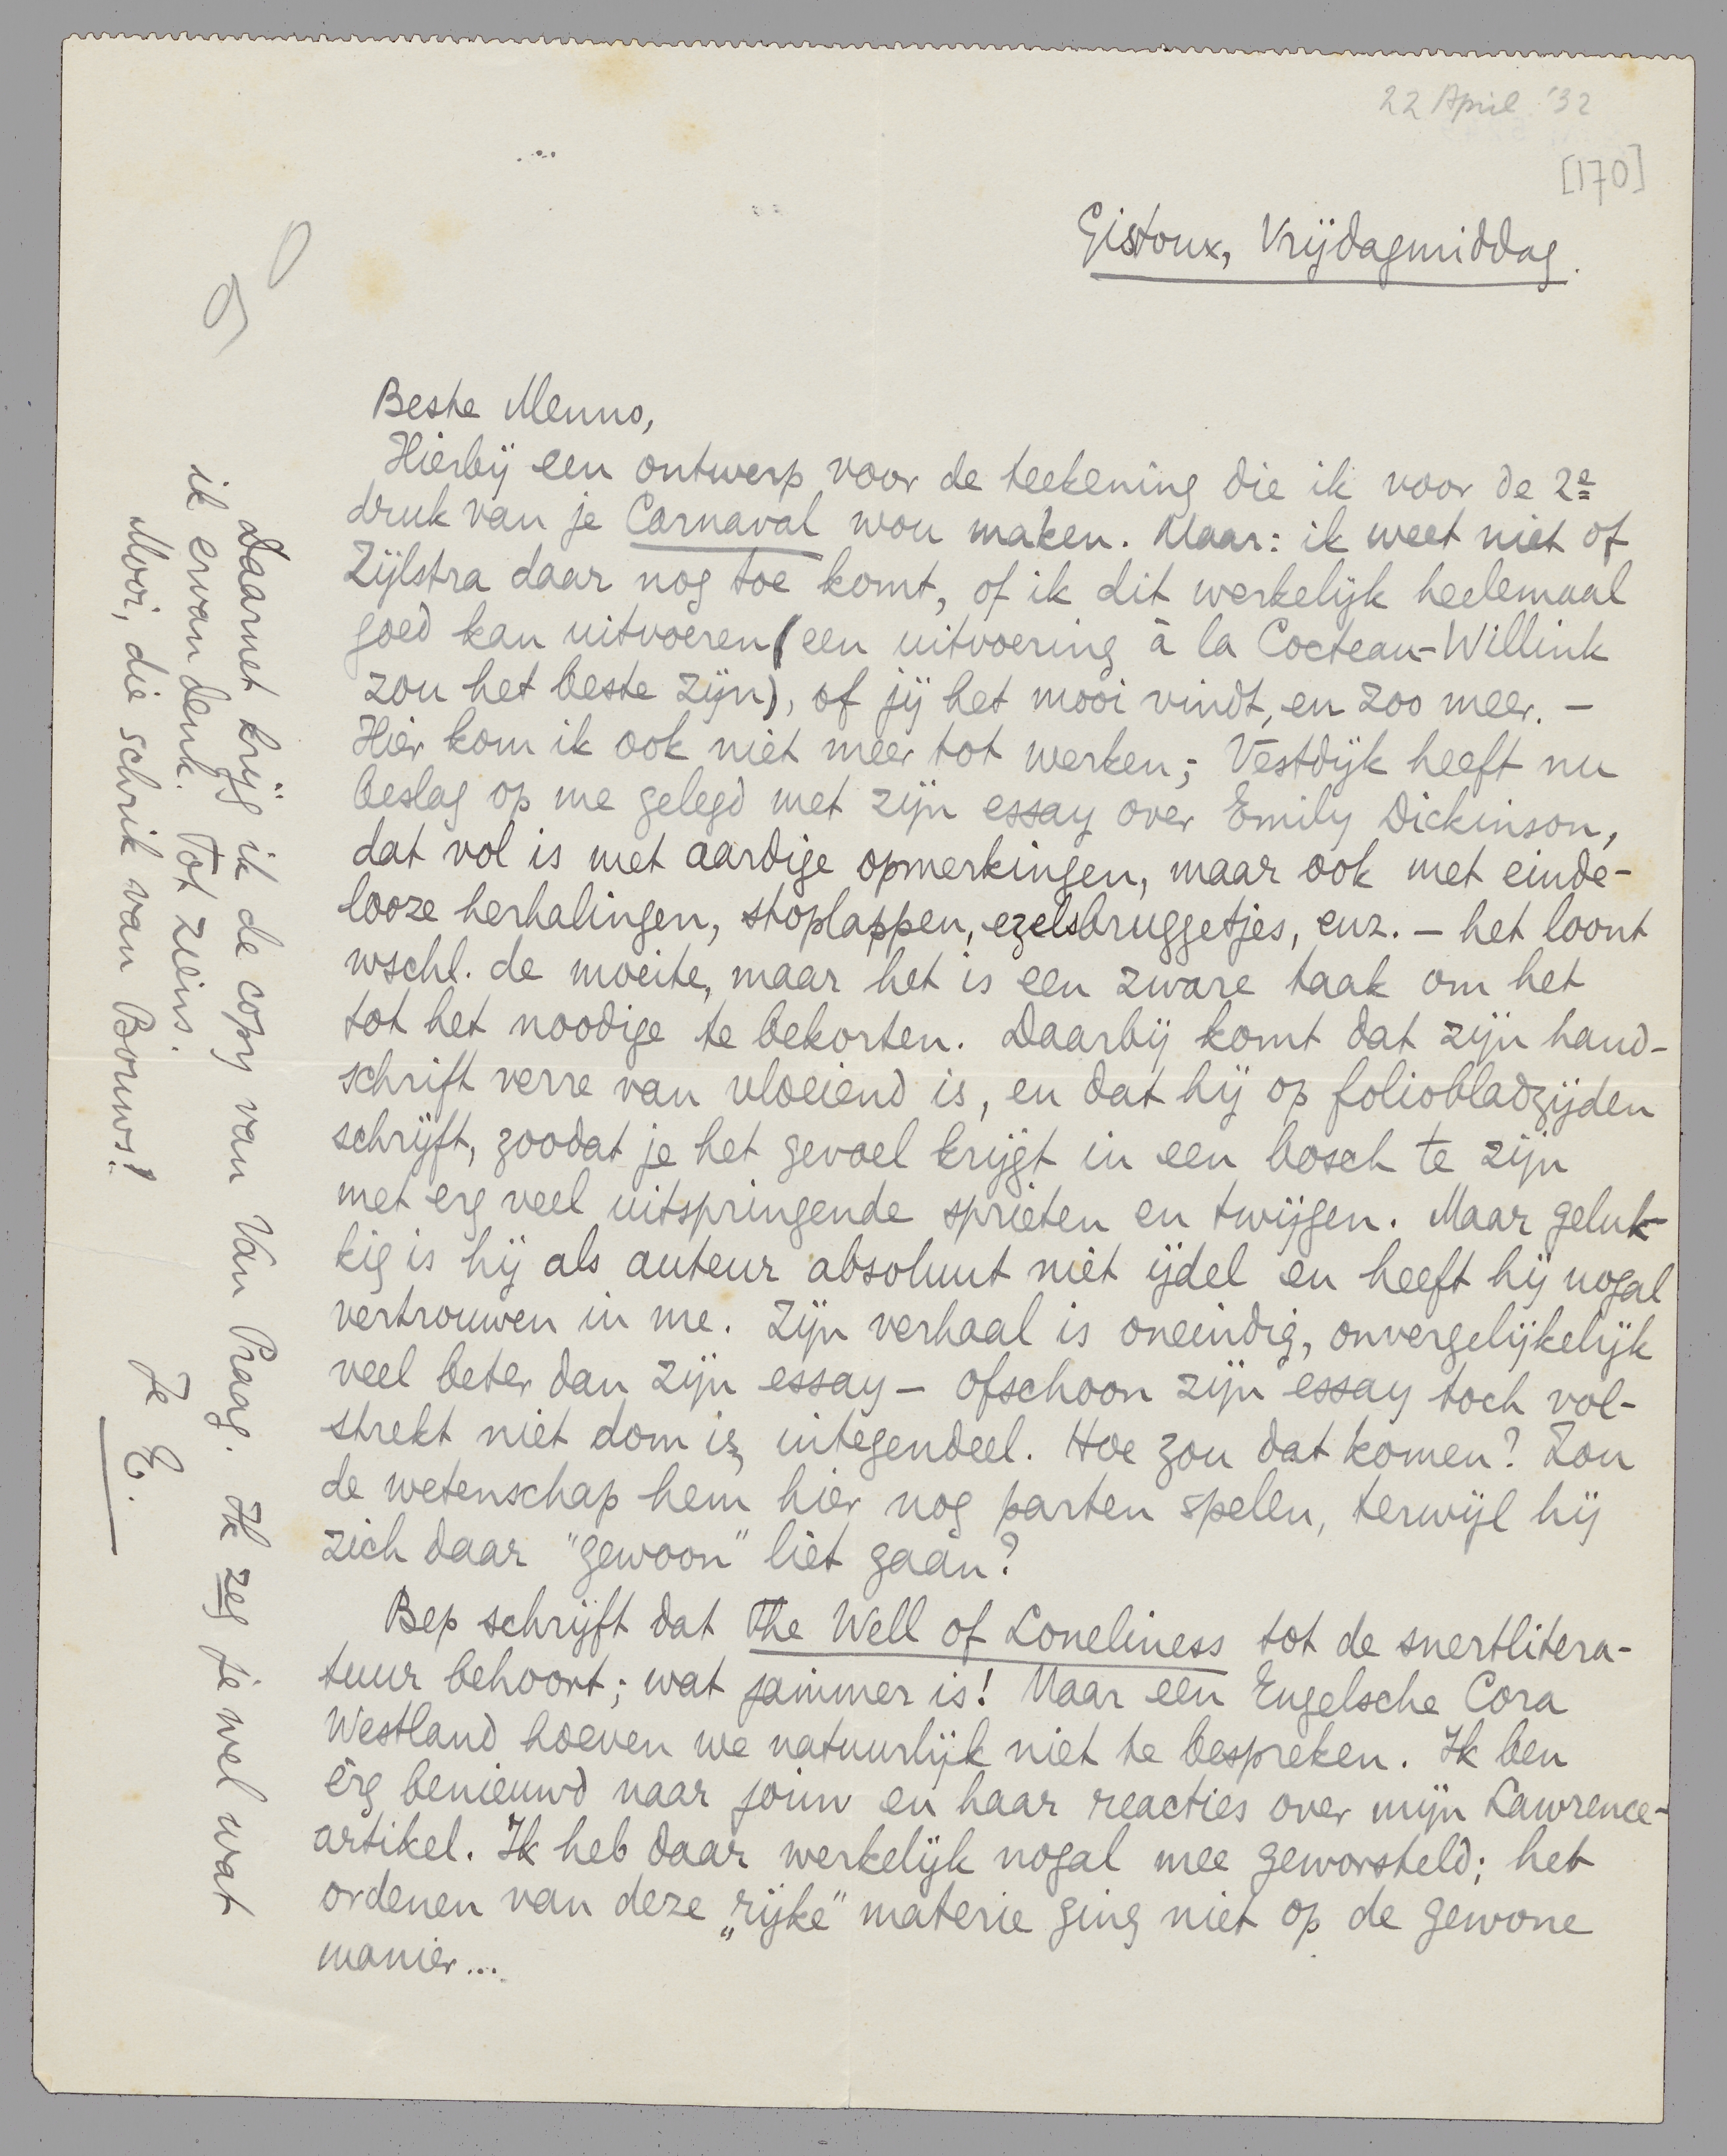 22 April '32
[170]
Gistoux, Vrijdagmiddag.
Beste Menno,
Hierbij een ontwerp voor de teekening die ik voor de 2e
druk van je Carnaval wou maken. Maar: ik weet niet of
Zijlstra daar nog toe komt, of ik dit werkelijk heelemaal
goed kan uitvoeren (een uitvoering à la Cocteau-Willink
zou het beste zijn), of jij het mooi vindt, en zoo meer. –
Hier kom ik ook niet meer tot werken; Vestdijk heeft nu
beslag op me gelegd met zijn essay over Emily Dickinson,
dat vol is met aardige opmerkingen, maar ook met einde-
looze herhalingen, stoplappen, ezelsbruggetjes, enz. – het loont
wschl. de moeite, maar het is een zware taak om het
tot het noodige te bekorten. Daarbij komt dat zijn hand-
schrift verre van vloeiend is, en dat hij op foliobladzijden
schrijft, zoodat je het gevoel krijgt in een bosch te zijn
met erg veel uitspringende sprieten en twijgen. Maar geluk-
kig is hij als auteur absoluut niet ijdel en heeft hij nogal
vertrouwen in me. Zijn verhaal is oneindig, onvergelijkelijk
veel beter dan zijn essay – ofschoon zijn essay toch vol-
strekt niet dom is, integendeel. Hoe zou dat komen? Zou
de wetenschap hem hier nog parten spelen, terwijl hij
zich daar "gewoon" liet gaan?
Bep schrijft dat The Well of Loneliness tot de snertlitera-
tuur behoort; wat jammer is! Maar een Engelsche Cora
Westland hoeven we natuurlijk niet te bespreken. Ik ben
erg benieuwd naar jouw en haar reacties over mijn Lawrence-
artikel. Ik heb daar werkelijk nogal mee geworsteld; het
ordenen van deze „rijke" materie ging niet op de gewone
manier...
Daarnet krijg ik de copy van Van Praag. Ik zeg je wel wat
ik ervan denk. Tot ziens.
Mooi, die schrik van Bouws!
Je E.